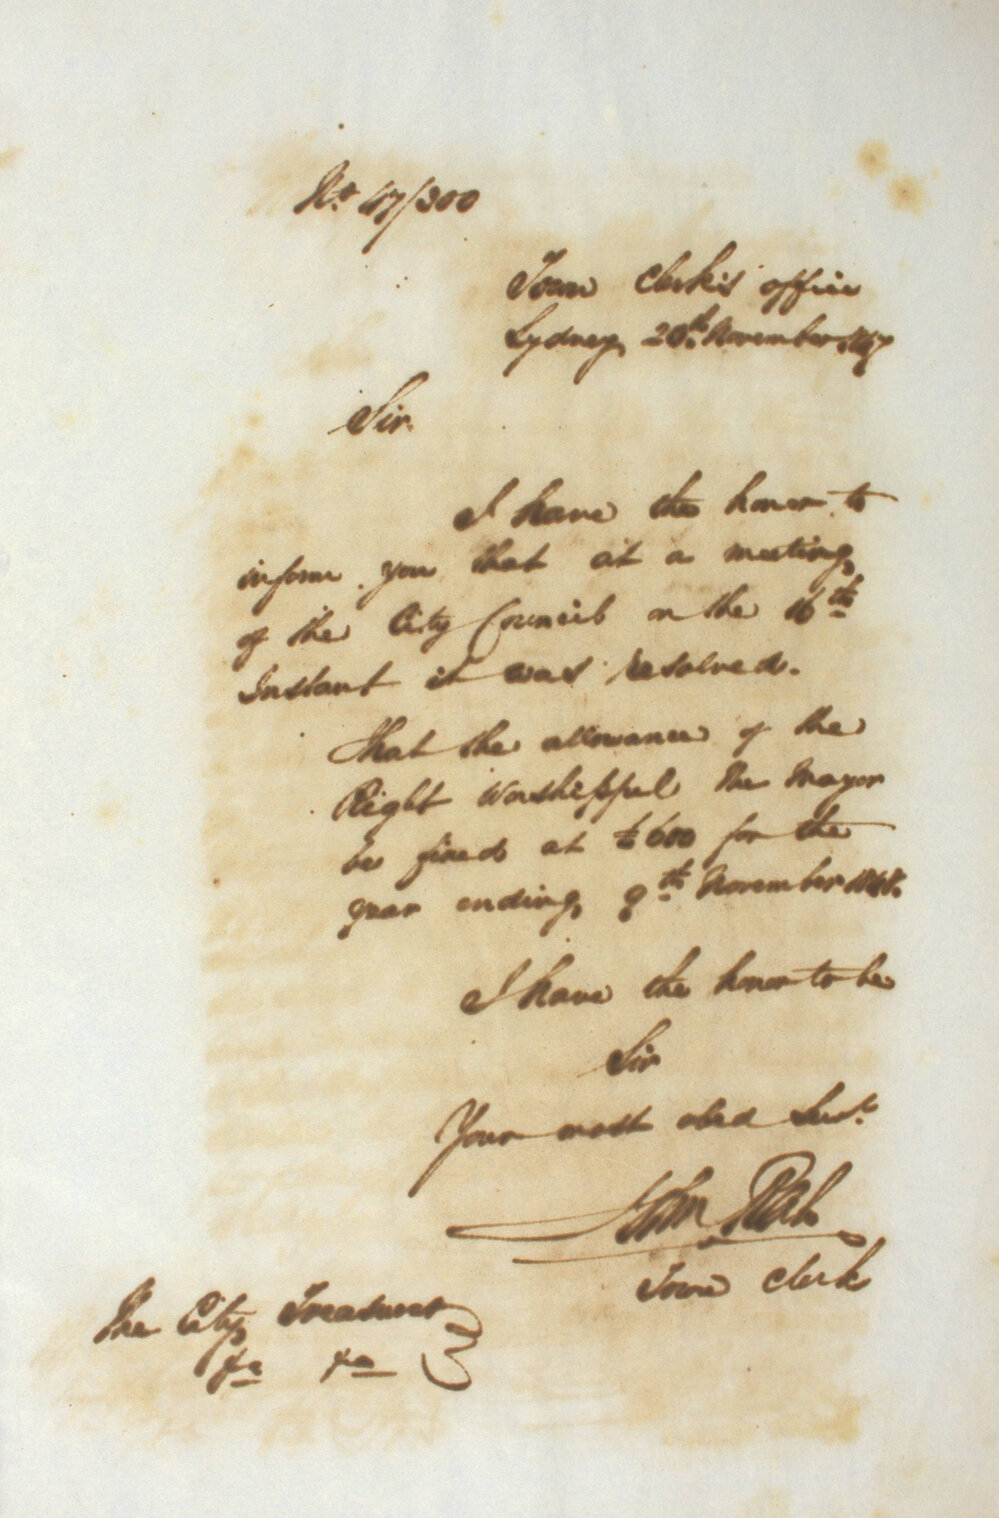 No 47/300
Town Clerk's office
Sydney 20th November 1847
Sir
I have the honor to
inform you that at a meeting
of the City Council on the 16th
Instant it was resolved.
That the allowance of the
Right Worshipful the Mayor
be fixed at £600 for the
year ending 9th November 1848.
I have the honor to be
Sir
Your most obed Servt
John
Town Clerk
The City Treasurer
&c &c